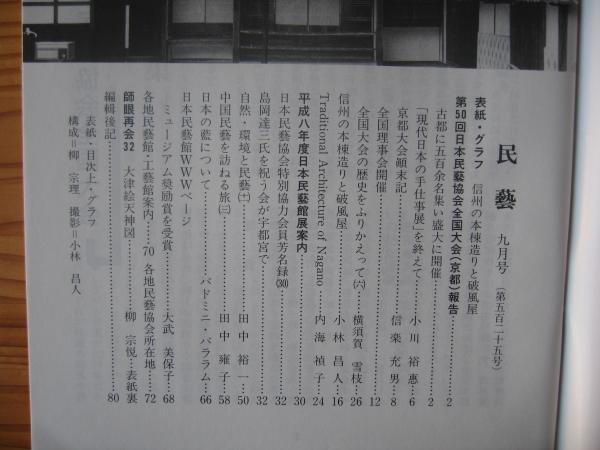 民藝 九月号 (第五百二十五号)
表紙・グラフ 信州の本棟造りと破風屋
第50回日本民藝協会全国大会(京都)報告……2
古都に五百余名集い盛大に開催……2
「現代日本の手仕事展」を終えて……小川裕惠…6
京都大会顛末記……信楽充男…8
全国理事会開催……12
全国大会の歴史をふりかえって(六)…横須賀雪枝…26
信州の本棟造りと破風屋……小林昌人…16
Traditional Architecture of Nagano……内海禎子…24
平成八年度日本民藝館展案内……30
日本民藝協会特別協力会員芳名録(30)……32
島岡達三氏を祝う会が宇都宮で……32
自然・環境と民藝(十)……田中裕一…50
中国民藝を訪ねる旅(三)……田中雍子…58
日本の藍について……バドミニ・バララム…66
日本民藝館WWWページ
ミュージアム奨励賞を受賞……大武美保子…68
各地民藝館・工藝館案内…70 各地民藝協会所在地…72
師眼再会32 大津絵天神図……柳宗悦…表紙裏
編輯後記……80
表紙・目次上・グラフ
構成=柳宗理 撮影=小林昌人